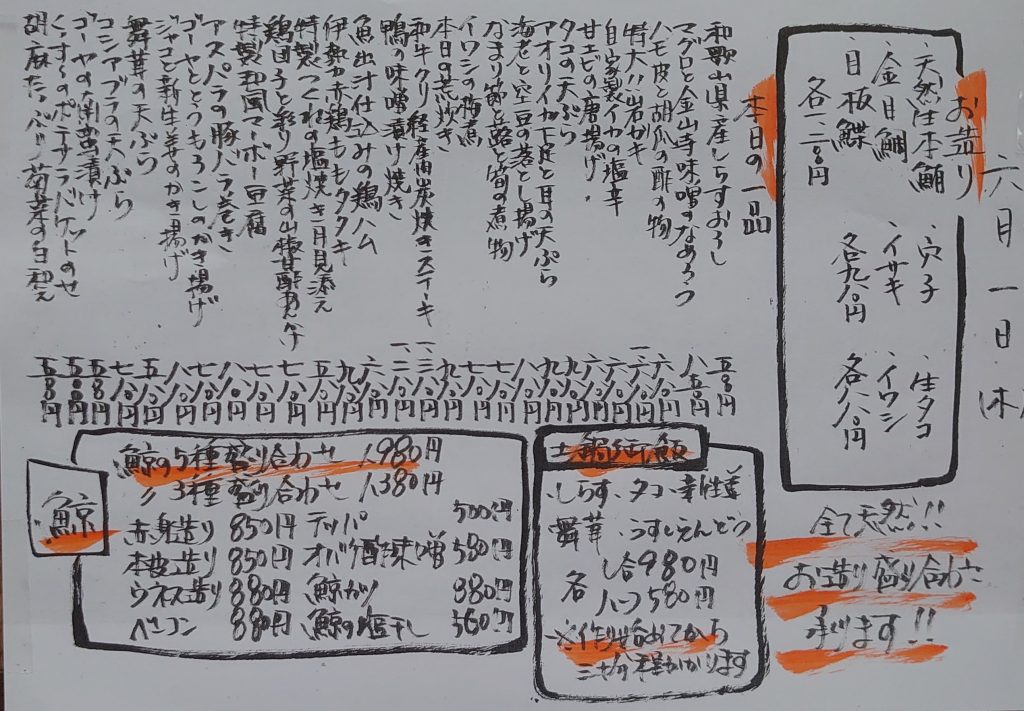 六月一日
お造り
・天然生本鮪
・金目鯛
・目板鰈
各一二八〇円
・穴子
・イサキ
各九八〇円
・生タコ
・イワシ
各八八〇円
全て天然!!
お造り盛り合わせ
承ります!!
本日の一品
和歌山県産しらすおろし 五八〇円
マグロと金山寺味噌のなめろう 八五〇円
ハモ皮と胡瓜の酢の物 六八〇円
特大!!岩ガキ
自家製イカの塩辛 六八〇円
甘エビの唐揚げ 六八〇円
タコの天ぷら 九八〇円
アオリイカ下足と耳の天ぷら 九八〇円
海老と空豆の落とし揚げ 八八〇円
なまり節と蕗と筍の煮物 七八〇円
イワシの梅煮 七八〇円
本日の荒炊き 九八〇円
和牛クリ 経産肉炭焼きステーキ
鴨の味噌漬け焼き
魚出汁仕込みの鶏ハム 六八〇円
伊勢赤鶏ももタタキ 九八〇円
特製つくねの塩焼き月見添え 五八〇円
鶏団子と彩り野菜の山椒酢あんかけ 七八〇円
特製和風マーボー豆腐 七八〇円
アスパラの豚バラ巻き 八八〇円
ゴーヤととうもろこしのかき揚げ 七八〇円
ジャコと新生姜のかき揚げ 八八〇円
舞茸の天ぷら 五八〇円
コシアブラの天ぷら 七八〇円
ゴーヤの南蛮漬け 五五〇円
くずし〜のポテサラバケットのせ 五八〇円
胡麻たっぷり菊菜の白和え 五八〇円
鯨
鯨の5種盛り合わせ 1,980円
〃 3種盛り合わせ 1,380円
赤身造り 850円 テッパ 500円
本皮造り 850円 オバケ酢味噌 580円
ウネス造り 880円 鯨カツ 880円
ベーコン 880円 鯨の塩干し 560円
土鍋御飯
しらす、タコ、新生姜
舞茸、うすいえんどう
各 一合980円
ハーフ580円
※作り始めてから
三十分程かかります